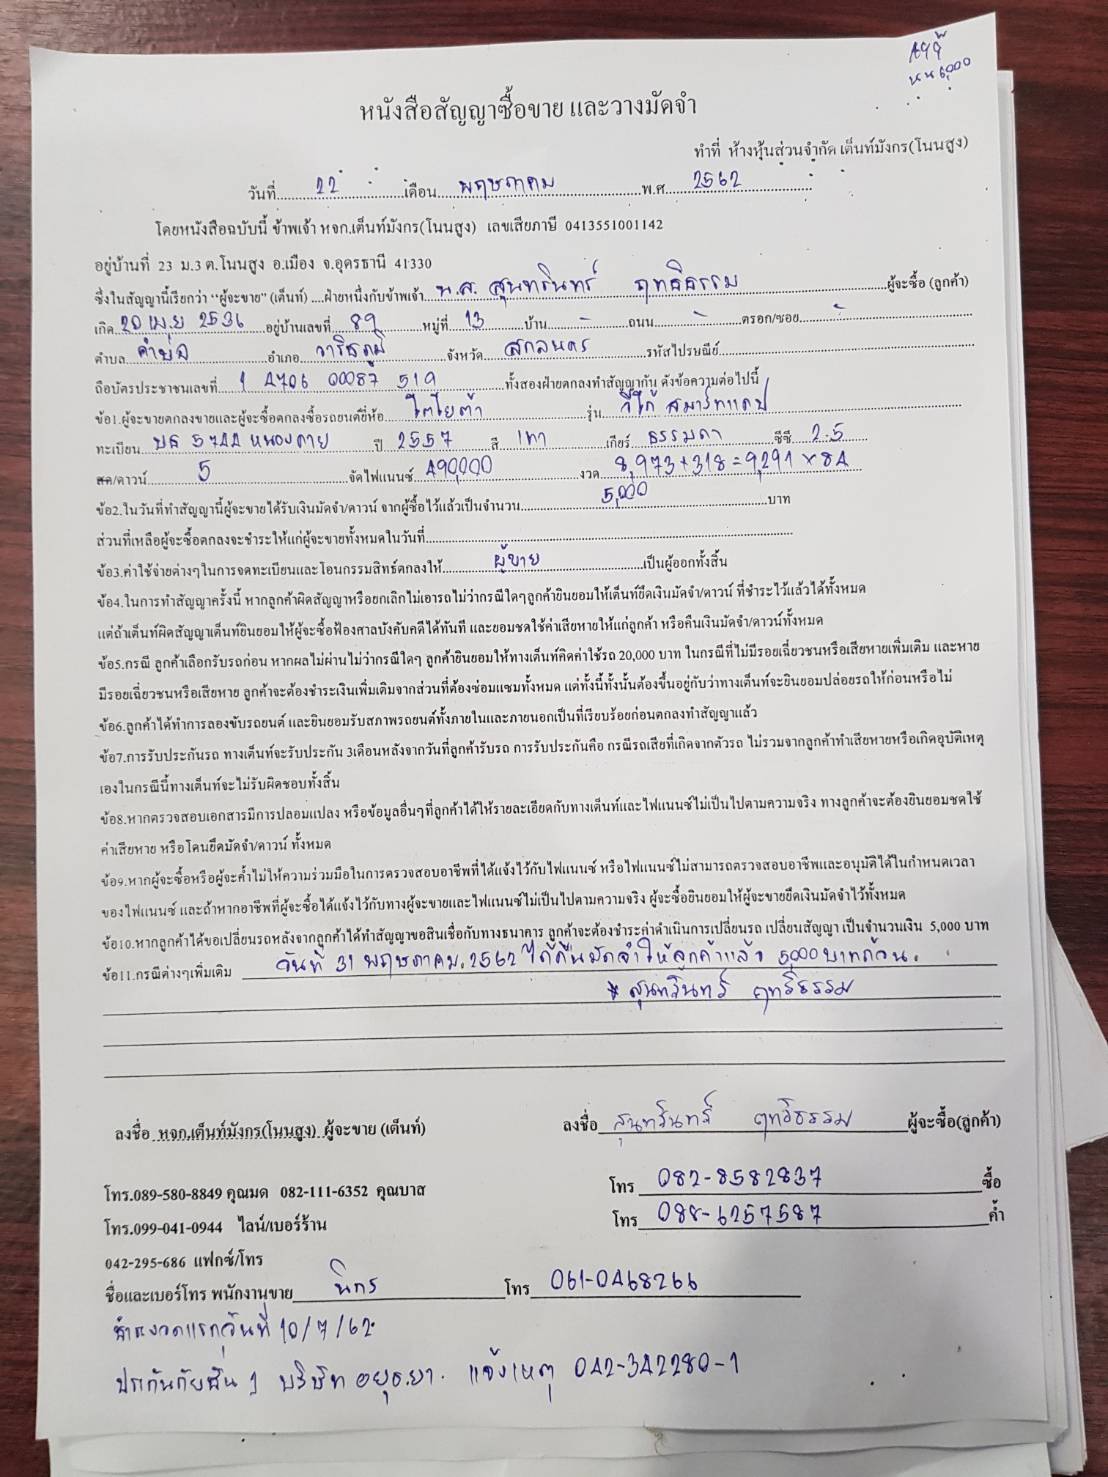 หนังสือสัญญาซื้อขาย และวางมัดจำ
ทำที่ ห้างหุ้นส่วนจำกัด เต็นท์มังกร(โนนสูง)
วันที่ 22 เดือน พฤษภาคม พ.ศ 2562
โดยหนังสือฉบับนี้ ข้าพเจ้า หจก.เต็นท์มังกร(โนนสูง) เลขเสียภาษี 0413551001142
อยู่บ้านที่ 23 ม.3 ต.โนนสูง อ.เมือง จ.อุดรธานี 41330
ซึ่งในสัญญานี้เรียกว่า "ผู้จะขาย" (เต็นท์) ....ฝ่ายหนึ่งกับข้าพเจ้า น.ส. สุนทรินทร์ ฤทธิธรรม ผู้จะซื้อ (ลูกค้า)
เกิด 20 เม.ย 2536 อยู่บ้านเลขที่ 89 หมู่ที่ 13 บ้าน - ถนน - ตรอก/ซอย -
ตำบล คำบ่อ อำเภอ วาริชภูมิ จังหวัด สกลนคร รหัสไปรษณีย์
ถือบัตรประชาชนเลขที่ 1 4706 00087 519 ทั้งสองฝ่ายตกลงทำสัญญากัน ดังข้อความต่อไปนี้
ข้อ1.ผู้จะขายตกลงขายและผู้จะซื้อตกลงซื้อรถยนต์ยี่ห้อ โตโยต้า รุ่น วีโก้ สมาร์ทแคป
ทะเบียน บธ 5744 หนองคาย ปี 2557 สี เทา เกียร์ ธรรมดา ซีซี 2.5
สด/ดาวน์ 5 จัดไฟแนนซ์ 490,000 งวด 8,973+318=9,291 x 84
ข้อ2.ในวันที่ทำสัญญานี้ผู้จะขายได้รับเงินมัดจำ/ดาวน์ จากผู้ซื้อไว้แล้วเป็นจำนวน 5,000 บาท
ส่วนที่เหลือผู้จะซื้อตกลงจะชำระให้แก่ผู้จะขายทั้งหมดในวันที่
ข้อ3.ค่าใช้จ่ายต่างๆในการจดทะเบียนและโอนกรรมสิทธ์ตกลงให้ ผู้ขาย เป็นผู้ออกทั้งสิ้น
ข้อ4.ในการทำสัญญาครั้งนี้ หากลูกค้าผิดสัญญาหรือยกเลิกไม่เอารถไม่ว่ากรณีใดๆลูกค้ายินยอมให้เต็นท์ยึดเงินมัดจำ/ดาวน์ ที่ชำระไว้แล้วได้ทั้งหมด
แต่ถ้าเต็นท์ผิดสัญญาเต็นท์ยินยอมให้ผู้จะซื้อฟ้องศาลบังคับคดีได้ทันที และยอมชดใช้ค่าเสียหายให้แก่ลูกค้า หรือคืนเงินมัดจำ/ดาวน์ทั้งหมด
ข้อ5.กรณี ลูกค้าเลือกรับรถก่อน หากผลไม่ผ่านไม่ว่ากรณีใดๆ ลูกค้ายินยอมให้ทางเต็นท์คิดค่าใช้รถ 20,000 บาท ในกรณีที่ไม่มีรอยเฉี่ยวชนหรือเสียหายเพิ่มเติม และหาย
มีรอยเฉี่ยวชนหรือเสียหาย ลูกค้าจะต้องชำระเงินเพิ่มเติมจากส่วนที่ต้องซ่อมแซมทั้งหมด แต่ทั้งนี้ทั้งนั้นต้องขึ้นอยู่กับว่าทางเต็นท์จะยินยอมปล่อยรถให้ก่อนหรือไม่
ข้อ6.ลูกค้าได้ทำการลองขับรถยนต์ และยินยอมรับสภาพรถยนต์ทั้งภายในและภายนอกเป็นที่เรียบร้อยก่อนตกลงทำสัญญาแล้ว
ข้อ7.การรับประกันรถ ทางเต็นท์จะรับประกัน 3เดือนหลังจากวันที่ลูกค้ารับรถ การรับประกันคือ กรณีรถเสียที่เกิดจากตัวรถ ไม่รวมจากลูกค้าทำเสียหายหรือเกิดอุบัติเหตุ
เองในกรณีนี้ทางเต็นท์จะไม่รับผิดชอบทั้งสิ้น
ข้อ8.หากตรวจสอบเอกสารมีการปลอมแปลง หรือข้อมูลอื่นๆที่ลูกค้าได้ให้รายละเอียดกับทางเต็นท์และไฟแนนซ์ไม่เป็นไปตามความจริง ทางลูกค้าจะต้องยินยอมชดใช้
ค่าเสียหาย หรือโดนยึดมัดจำ/ดาวน์ ทั้งหมด
ข้อ9.หากผู้จะซื้อหรือผู้จะค้ำไม่ให้ความร่วมมือในการตรวจสอบอาชีพที่ได้แจ้งไว้กับไฟแนนซ์ หรือไฟแนนซ์ไม่สามารถตรวจสอบอาชีพและอนุมัติได้ในกำหนดเวลา
ของไฟแนนซ์ และถ้าหากอาชีพที่ผู้จะซื้อได้แจ้งไว้กับทางผู้จะขายและไฟแนนซ์ไม่เป็นไปตามความจริง ผู้จะซื้อยินยอมให้ผู้จะขายยึดเงินมัดจำไว้ทั้งหมด
ข้อ10.หากลูกค้าได้ขอเปลี่ยนรถหลังจากลูกค้าได้ทำสัญญาขอสินเชื่อกับทางธนาคาร ลูกค้าจะต้องชำระค่าดำเนินการเปลี่ยนรถ เปลี่ยนสัญญา เป็นจำนวนเงิน 5,000 บาท
ข้อ11.กรณีต่างๆเพิ่มเติม วันที่ 31 พฤษภาคม. 2562 ได้คืนมัดจำให้ลูกค้าแล้ว 5,000 บาทถ้วน.
* สุนทรินทร์ ฤทธิธรรม
ลงชื่อ หจก.เต็นท์มังกร(โนนสูง) ผู้จะขาย (เต็นท์) ลงชื่อ สุนทรินทร์ ฤทธิธรรม ผู้จะซื้อ(ลูกค้า)
โทร.089-580-8849 คุณมด 082-111-6352 คุณบาส โทร 082-8582837 ซื้อ
โทร.099-041-0944 ไลน์/เบอร์ร้าน โทร 088-6257587 ค้ำ
042-295-686 แฟกซ์/โทร
ชื่อและเบอร์โทร พนักงานขาย นิกร โทร 061-0468266
ชำระงวดแรกวันที่ 10/7/62
ประกันภัยชั้น 1 บริษัท อยุธยา. แจ้งเหตุ 042-342280-1